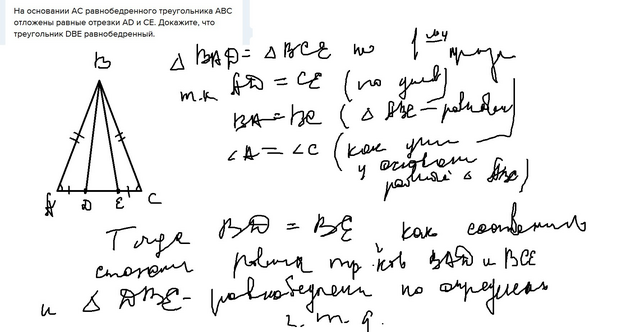 На основании АС равнобедренного треугольника АВС
отложены равные отрезки AD и СЕ. Докажите, что
треугольник DBE равнобедренный.
B
A D E C
△ BAD = △ BCE по 1
т.к AD = CE (по
BA = BC (△ ABC – равнобед
∠A = ∠C (как углы
у основан
равноб △ ABC)
Тогда BD = BE как соответств
стороны равных тр-ков BAD и BCE
и △ DBE – равнобедрен по определен
ч.т.д.